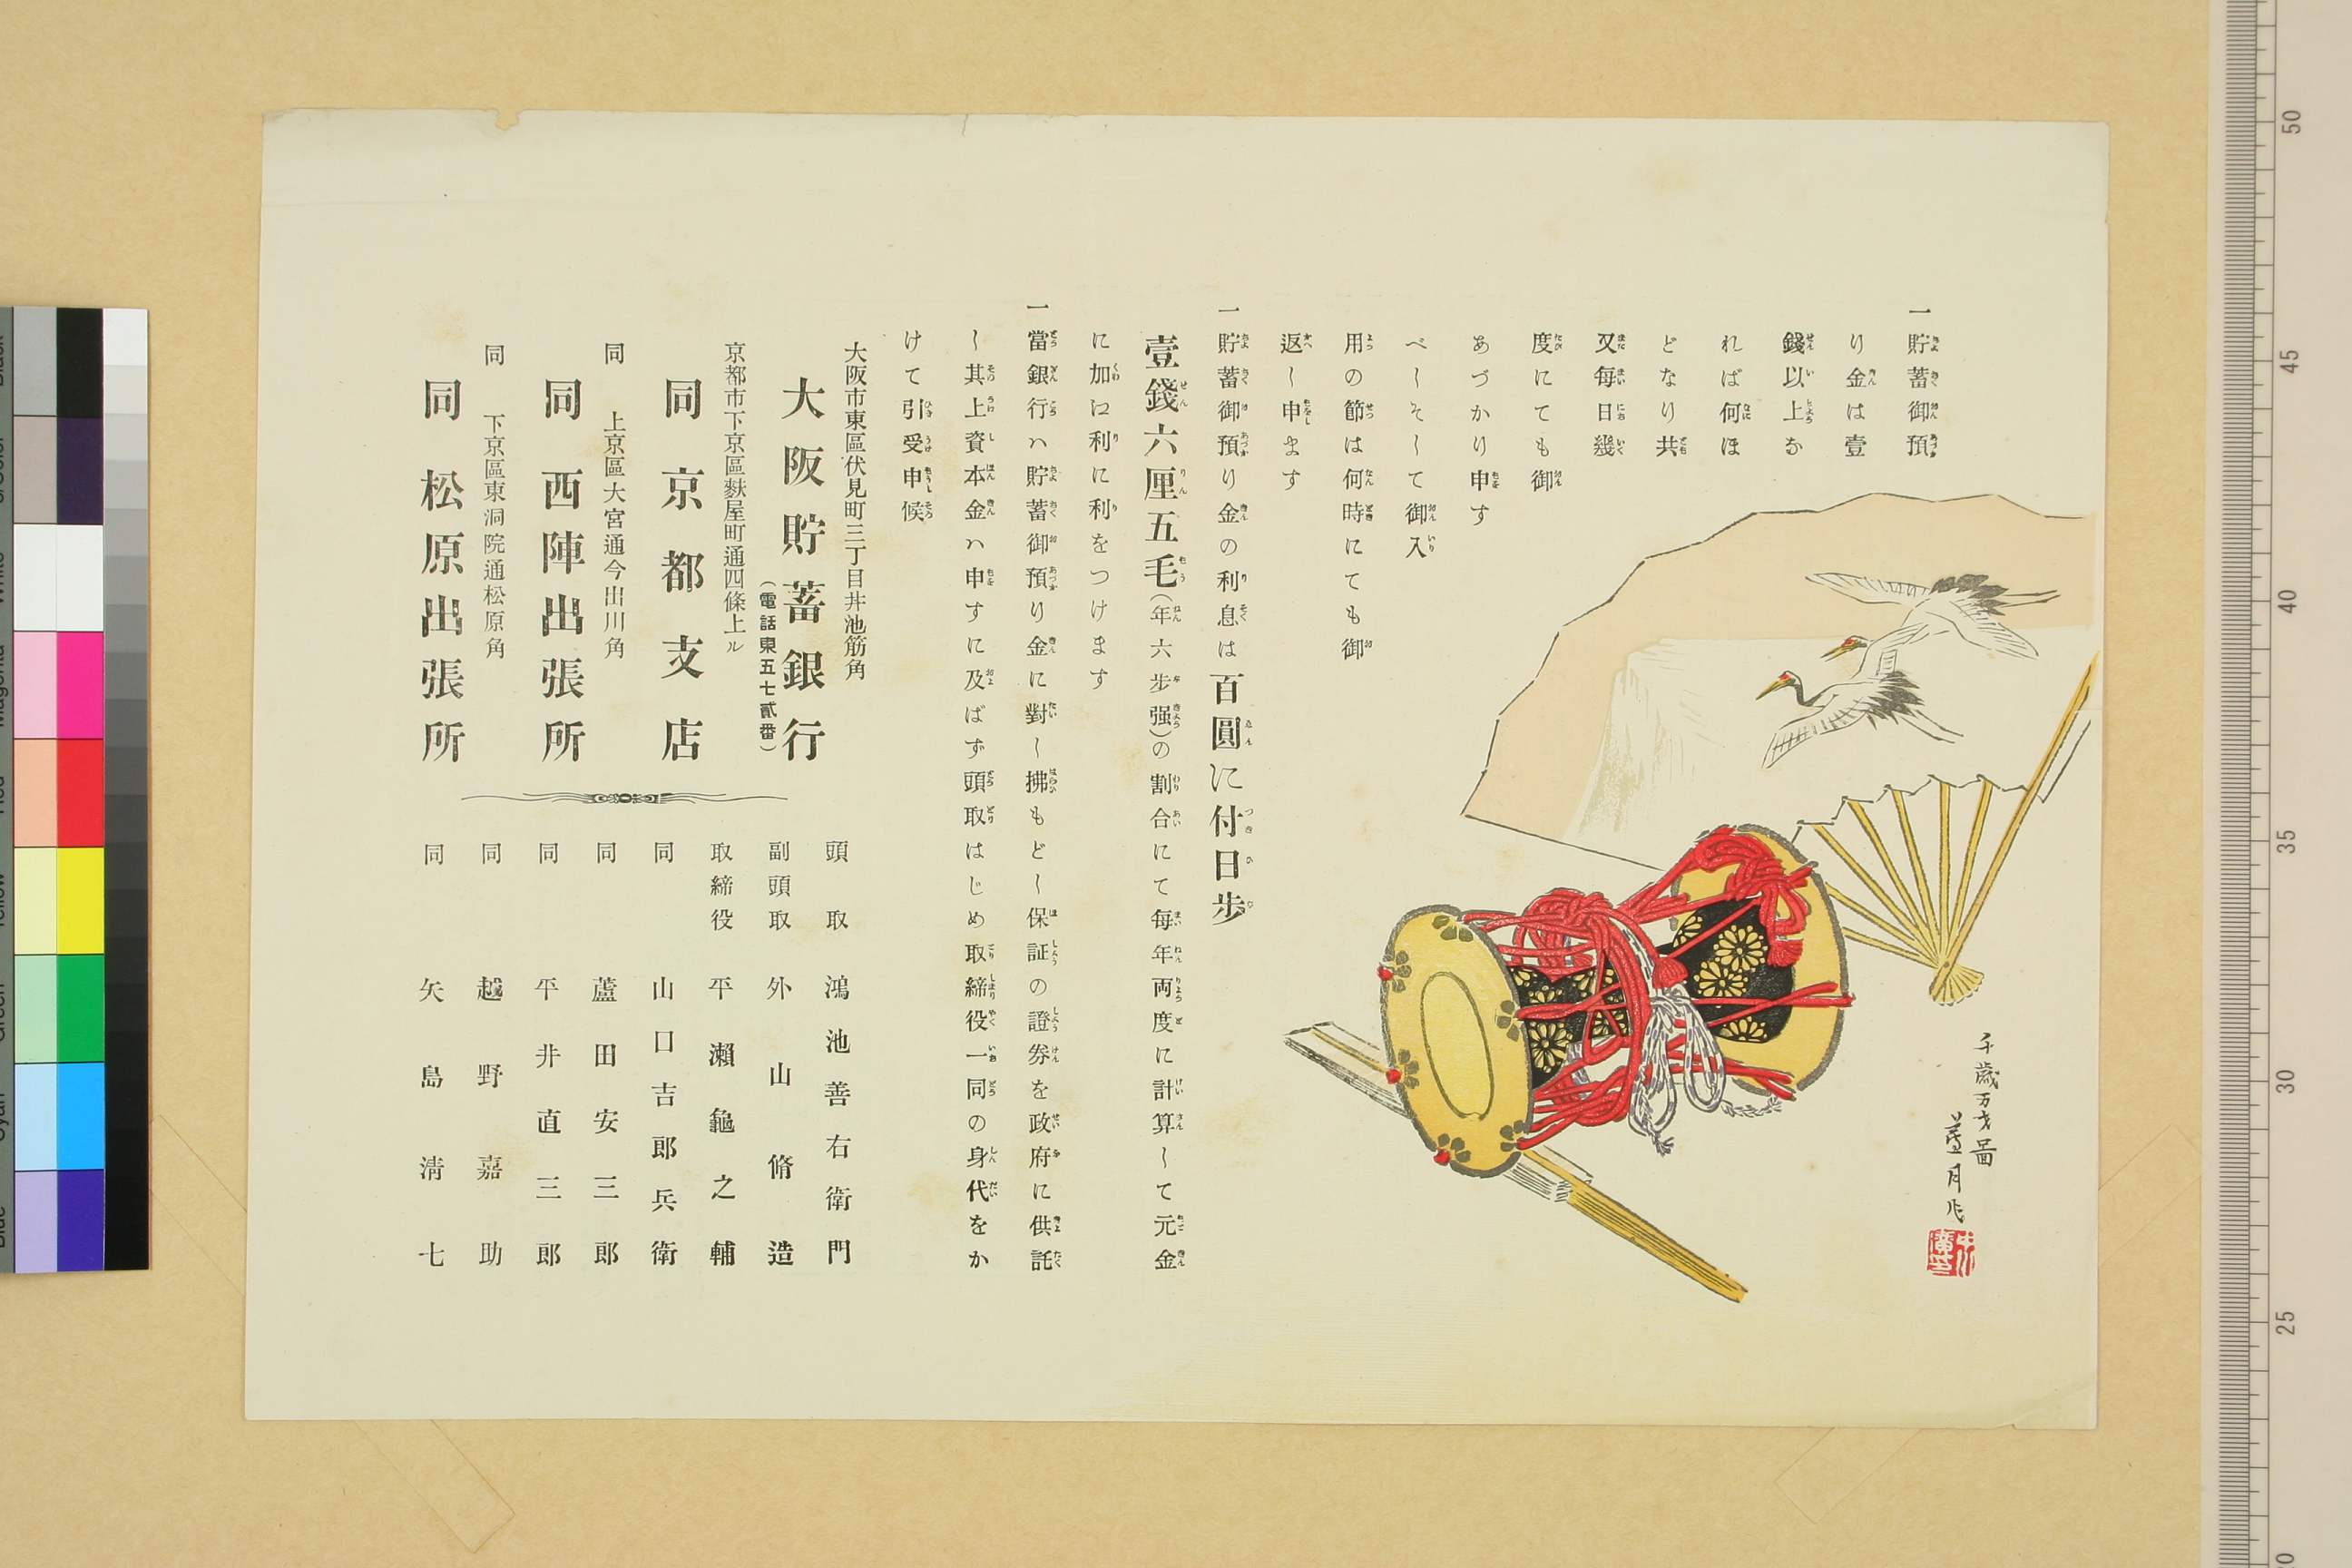 一貯蓄御預
り金は壹
錢以上な
れば何ほ
どなり共
又毎日幾
度にても御
あづかり申す
べしそして御入
用の節は何時にても御
返し申ます
一貯蓄御預り金の利息は百圓に付日歩
壹錢六厘五毛(年六歩强)の割合にて毎年両度に計算して元金
に加に利に利をつけます
一當銀行ハ貯蓄御預り金に對し拂もどし保証の證券を政府に供託
し其上資本金ハ申すに及ばず頭取はじめ取締役一同の身代をか
けて引受申候
大阪市東區伏見町三丁目井池筋角
大阪貯蓄銀行
(電話東五七貳番)
京都市下京區麩屋町通四條上ル
同京都支店
同 上京區大宮通今出川角
同西陣出張所
同 下京區東洞院通松原角
同松原出張所
頭取 鴻池善右衛門
副頭取 外山脩造
取締役 平瀬龜之輔
同 山口吉郎兵衛
同 蘆田安三郎
同 平井直三郎
同 越野嘉助
同 矢島淸七
千歳万才図
芦月作
50
45
40
35
30
25